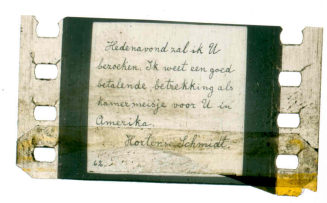 Hedenavond zal ik U
bezoeken. Ik weet een goed
betalende betrekking als
kamermeisje voor U in
Amerika.
Hortense Schmidt.
62.